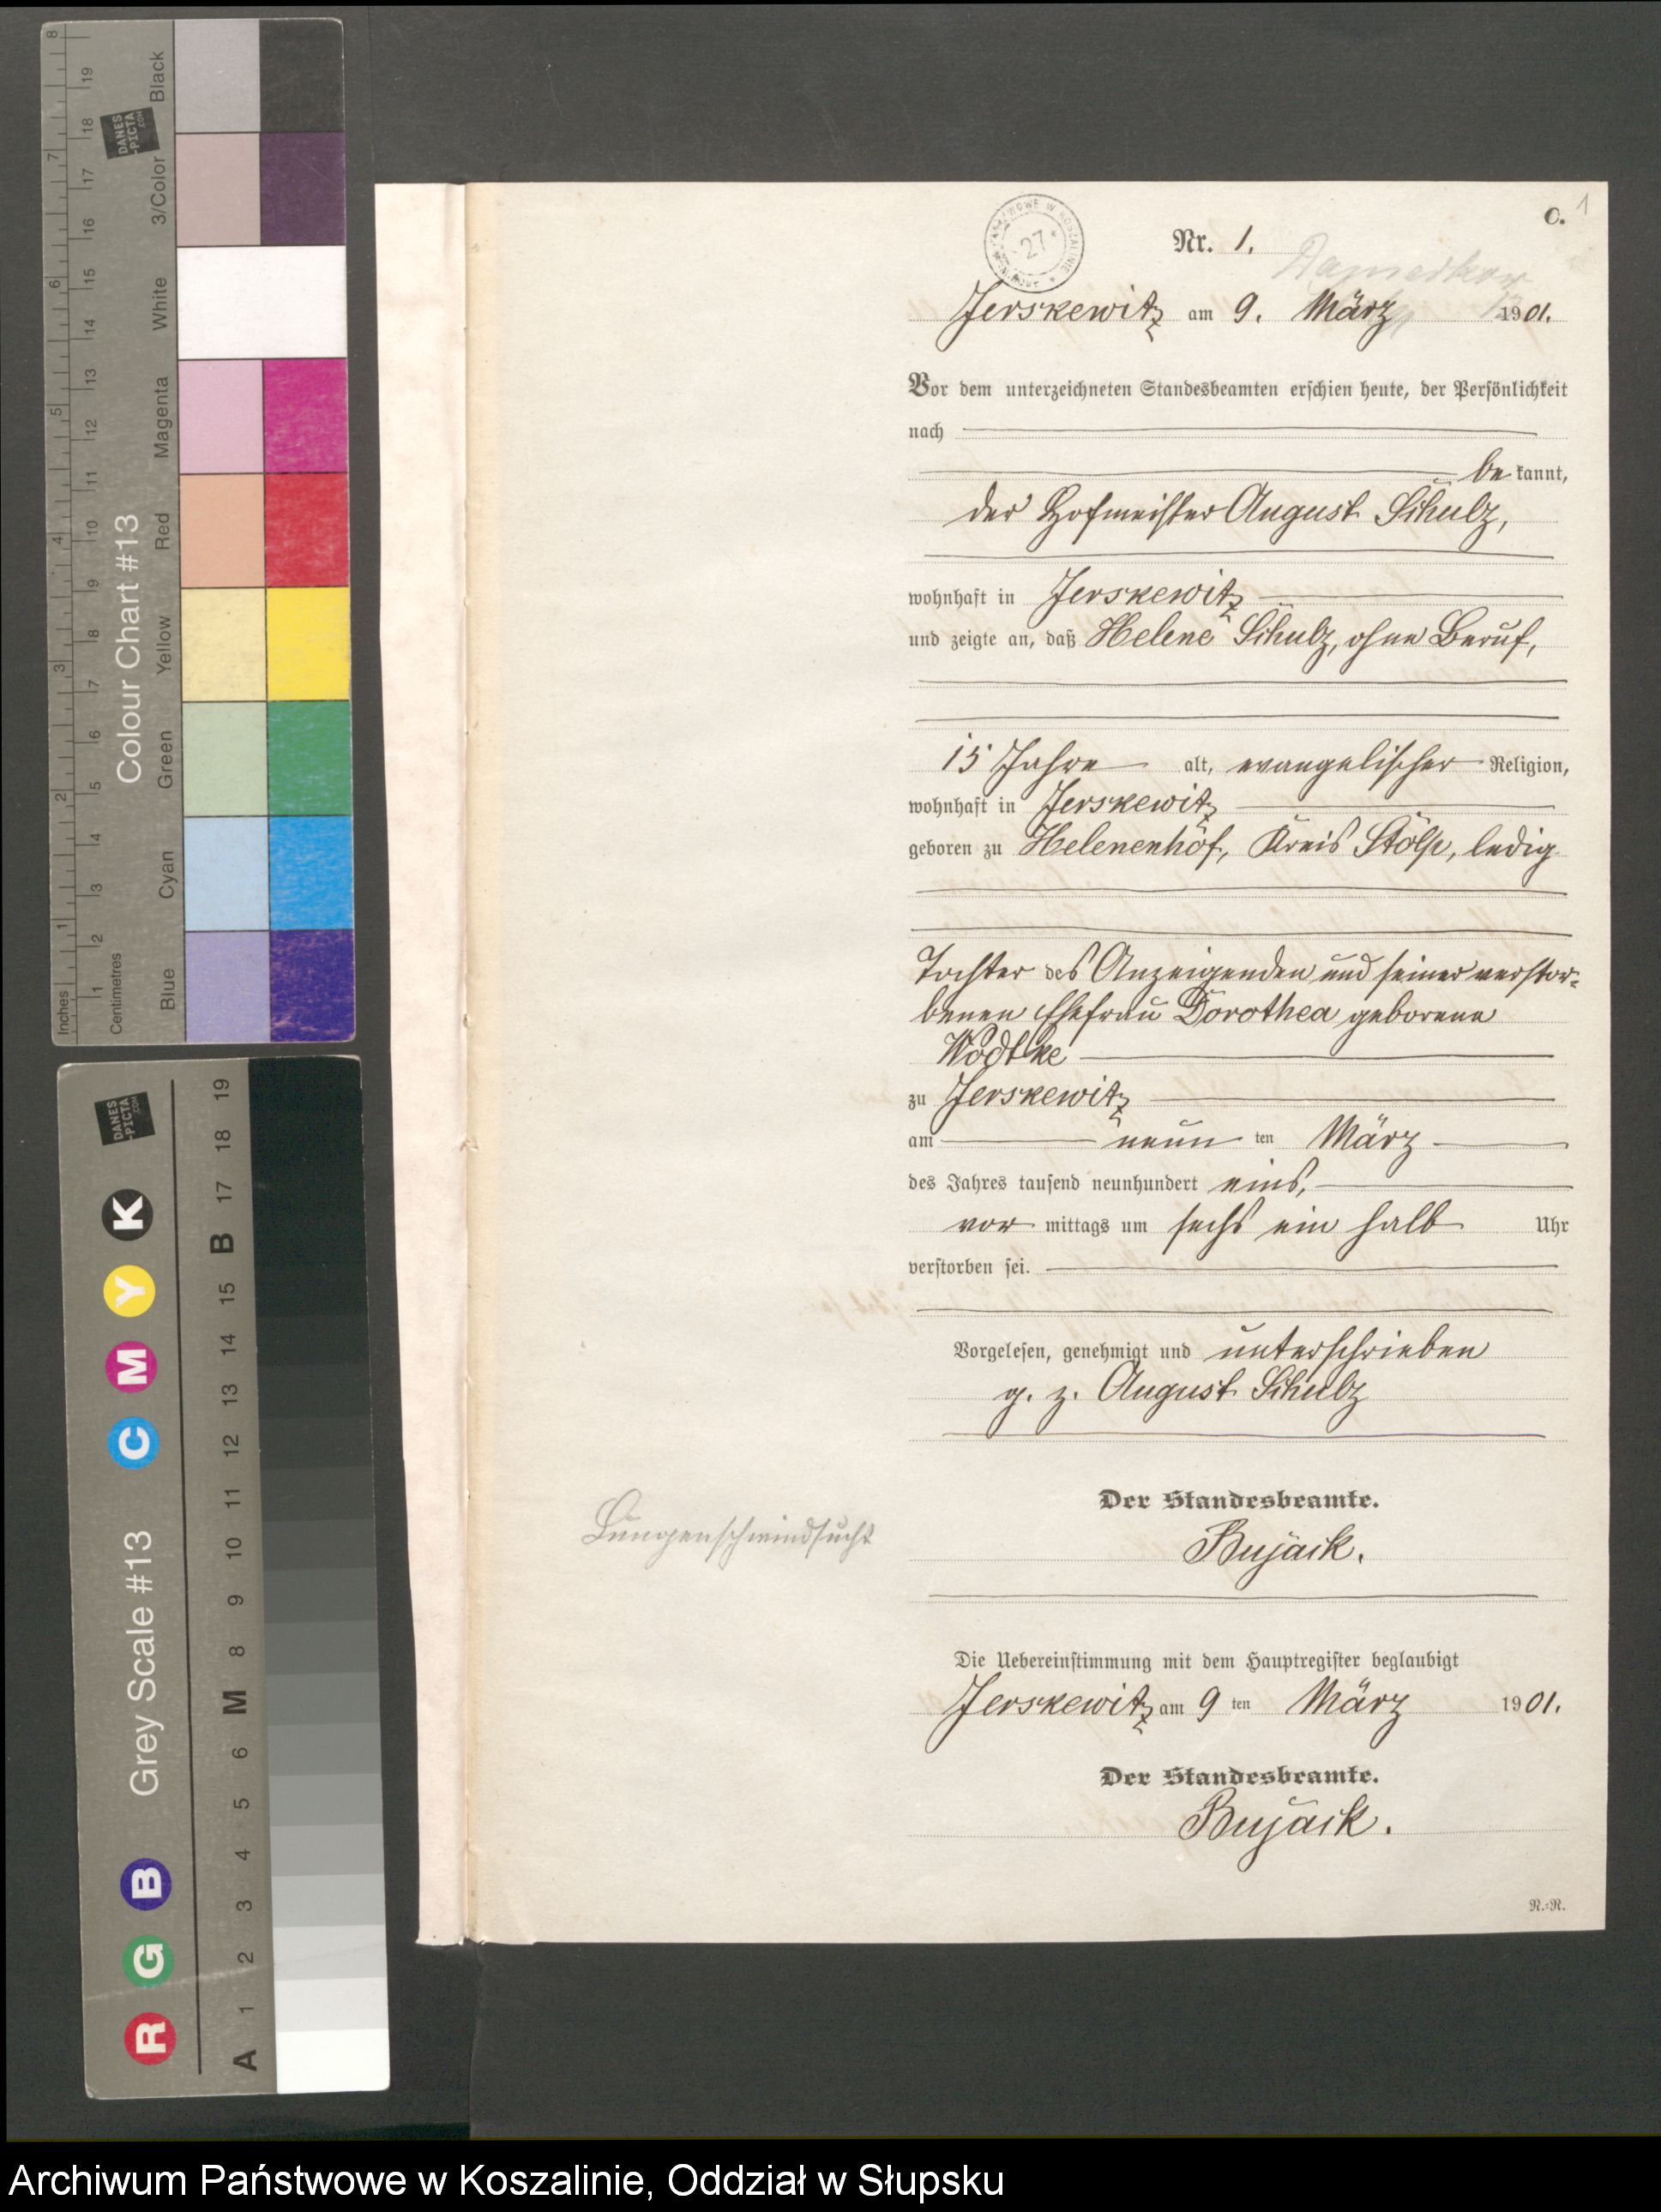 8
7
6
5
4
3
2
1
Inches
19
18
17
16
15
14
13
12
11
10
9
8
7
6
5
4
3
2
1
Centimetres
DANES
-PICTA
.COM
Colour Chart #13
Black
3/Color
White
Magenta
Red
Yellow
Green
Cyan
Blue
DANES
-PICTA
.COM
Grey Scale #13
K
Y
M
C
B
G
R
19
18
17
B
15
14
13
12
11
10
9
8
M
6
5
4
3
2
1
A
C. 1
27
Nr. 1.
Jerskewitz am 9. März 1901.
Vor dem unterzeichneten Standesbeamten erschien heute, der Persönlichkeit
nach
be kannt,
der Hofmeister August Schulz,
wohnhaft in Jerskewitz
und zeigte an, daß Helene Schulz, ohne Beruf,
15 Jahre alt, evangelischer Religion,
wohnhaft in Jerskewitz
geboren zu Helenenhof, Kreis Stolp, ledig
Tochter des Anzeigenden und seiner verstor-
benen Ehefrau Dorothea geborene
Wodtke
zu Jerskewitz
am neun ten März
des Jahres tausend neunhundert eins,
vor mittags um sechs ein halb Uhr
verstorben sei.
Vorgelesen, genehmigt und unterschrieben
g. z. August Schulz
Der Standesbeamte.
Lungenschwindsucht
Bujack.
Die Uebereinstimmung mit dem Hauptregister beglaubigt
Jerskewitz am 9 ten März 1901.
Der Standesbeamte.
Bujack.
R.-R.
Archiwum Państwowe w Koszalinie, Oddział w Słupsku